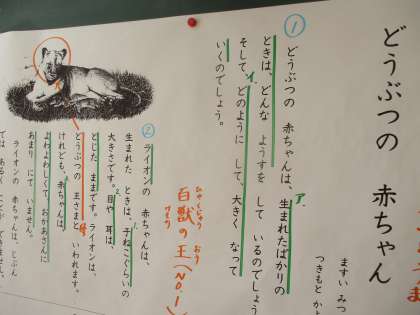 どうぶつの 赤ちゃん
ますい みつ
① どうぶつの 赤ちゃんは、生まれたばかりの
ときは、どんな ようすを して いるのでしょう
そして、どのように して、大きく なって
いくのでしょう。
ア.
イ.
百獣の王(No.1)
ひゃくじゅう おう
② ライオンの 赤ちゃんは、
生まれた ときは、子ねこぐらいの
大きさです。目や 耳は、
とじた ままです。ライオンは、
どうぶつの 王さまと いわれます。
けれども、赤ちゃんは、
よわよわしくて、おかあさんに
あまり にて いません。
ライオンの 赤ちゃんは、じぶん
では あるく ことが できません。